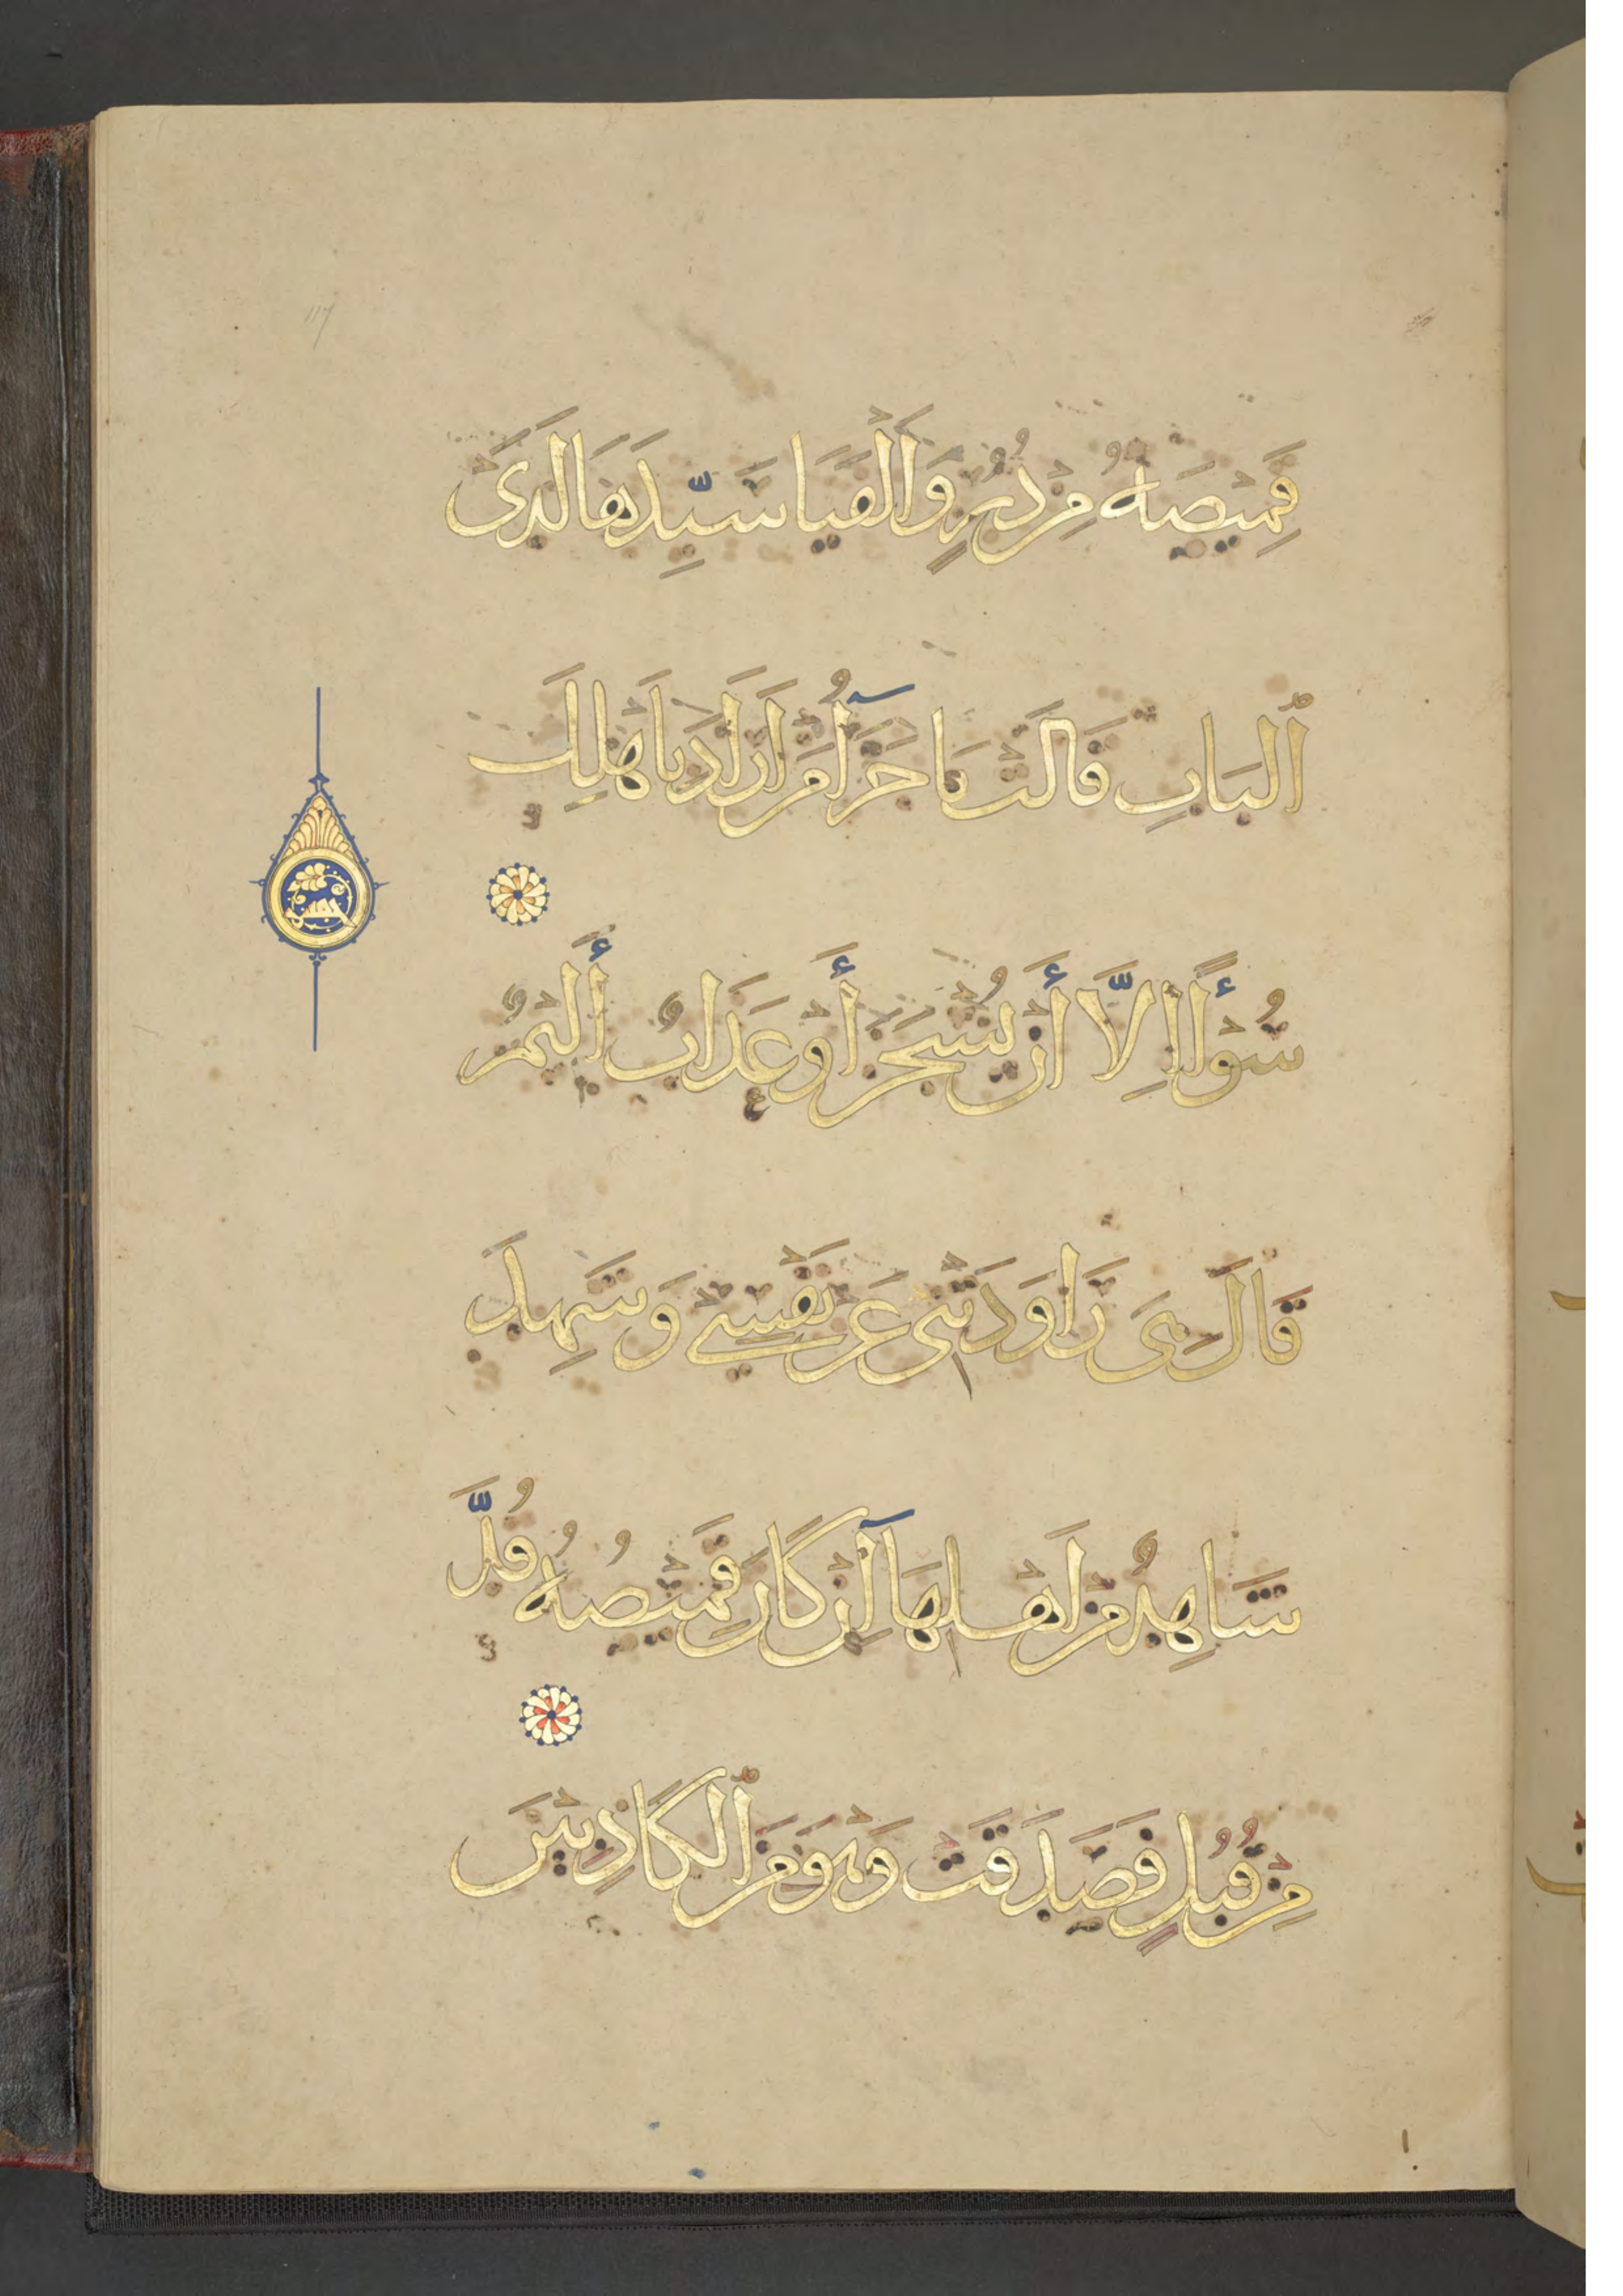 117
قَمِيصَهُ مِنْ دُبُرٍ وَأَلْفَيَا سَيِّدَهَا لَدَى
ٱلْبَابِ قَالَتْ مَا جَزَآءُ مَنْ أَرَادَ بِأَهْلِكَ
سُوْءًا إِلَّا أَنْ يُسْجَنَ أَوْ عَذَابٌ أَلِيمٌ
قَالَ هِيَ رَاوَدَتْنِي عَنْ نَفْسِي وَشَهِدَ
شَاهِدٌ مِنْ أَهْلِهَآ إِنْ كَانَ قَمِيصُهُ قُدَّ
مِنْ قُبُلٍ فَصَدَقَتْ وَهْوَ مِنَ ٱلْكَاذِبِينَ